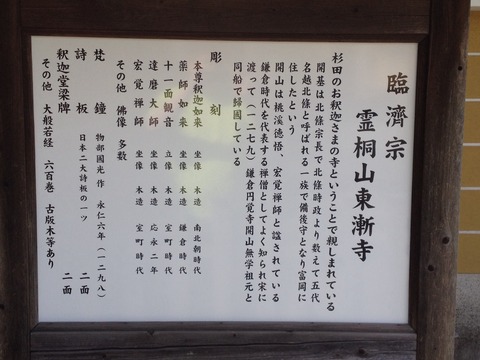 臨濟宗
霊桐山東漸寺
杉田のお釈迦さまの寺ということで親しまれている
開基は北條宗長で北條時政より数えて五代
名越北條と呼ばれる一族で備後守となり富岡に
住したという
開山は桃溪徳悟、宏覚禅師と諡されている
鎌倉時代を代表する禅僧としてよく知られ宋に
渡って(一二七九)鎌倉円覚寺開山無学祖元と
同船で歸國している
彫刻
本尊釈迦如来 坐像 木造 南北朝時代
薬師如来 坐像 木造 鎌倉時代
十一面観音 立像 木造 室町時代
達磨大師 坐像 木造 応永二年
宏覚禅師 坐像 木造 室町時代
その他 佛像 多数
梵鐘 物部國光作 永仁六年(一二九八)
詩板 日本二大詩板の一ツ 二面
釈迦堂梁牌 二面
その他 大般若経 六百巻 古版木等あり